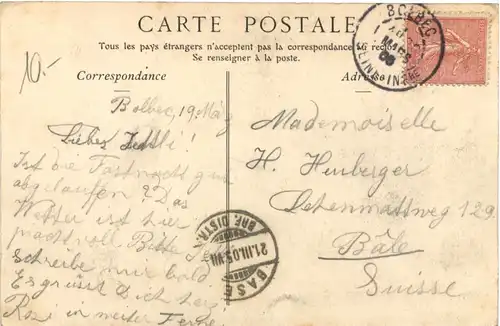 CARTE POSTALE
Tous les pays étrangers n'acceptent pas la correspondance au recto
Se renseigner à la poste.
Correspondance
Adresse
10.-
BOLBEC
Bolbec, 19. März
Liebes
Ist die Fastnacht gut
abgelaufen? Das
Wetter ist hier
prachtvoll Bitte
Schreibe mir bald
Es grüsst Dich herz
Rosi in weiter Ferne
Mademoiselle
H. Heuberger
Lehenmattweg 129
Bâle
Suisse
BASEL
21.III.05.VII
BRF. DISTR.